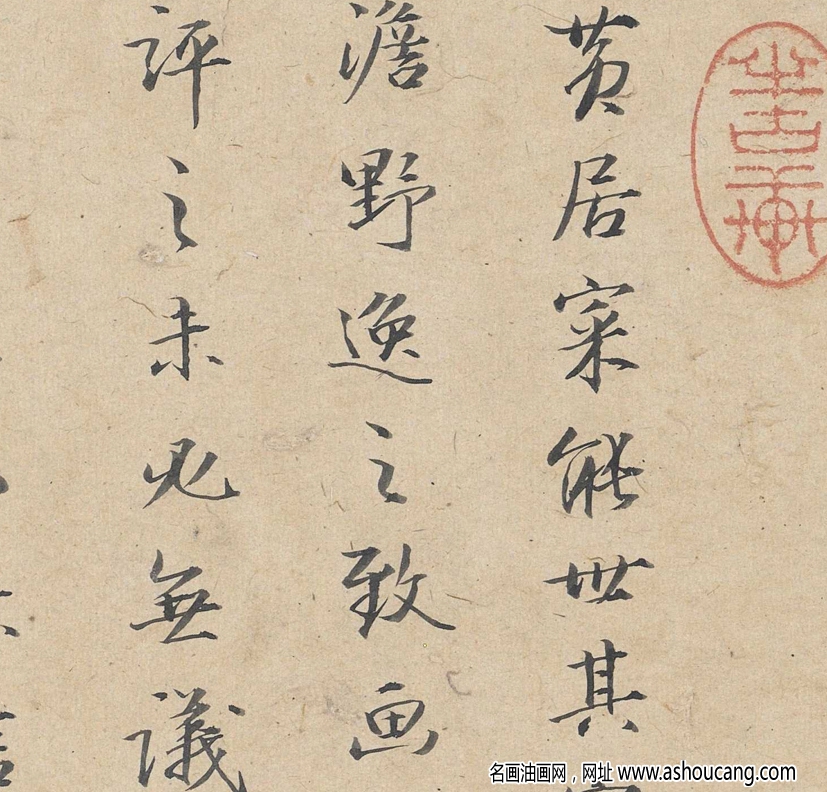 黄居寀能世其
澹野逸之致画
評之未必無議
名画油画网，网址 www.ashoucang.com